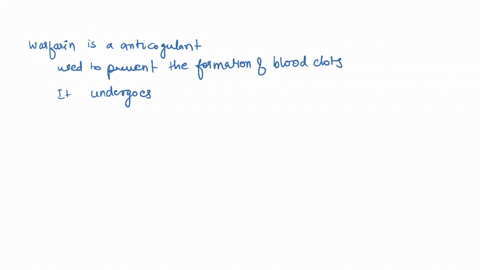 Warfarin is a anticogulant
used to prevent the formation of blood clots
It undergoes